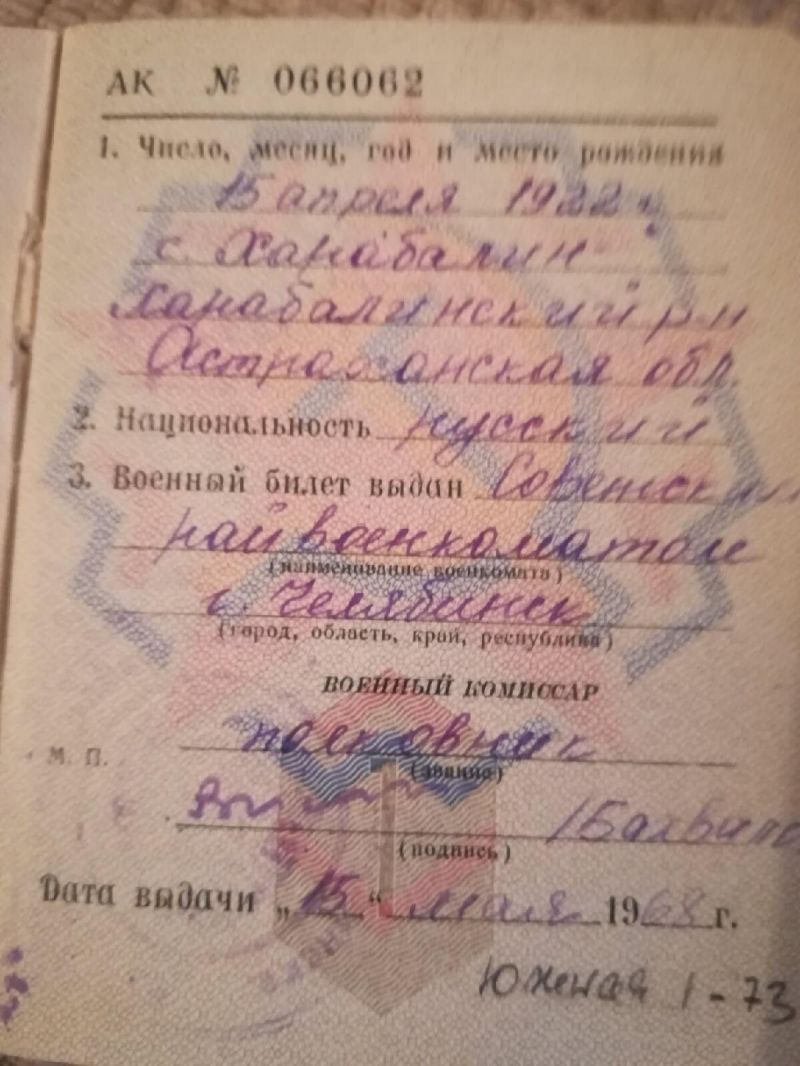 АК № 066062
1. Число, месяц, год и место рождения
15 апреля 1922 г.
с. Харабалин
Харабалинский р-н
Астраханская обл.
2. Национальность русский
3. Военный билет выдан Советским
райвоенкоматом
(наименование военкомата)
г. Челябинск
(город, область, край, республика)
ВОЕННЫЙ КОМИССАР
полковник
М. П.
(звание)
(подпись)
Дата выдачи „15“ мая 1968 г.
Южная 1-73